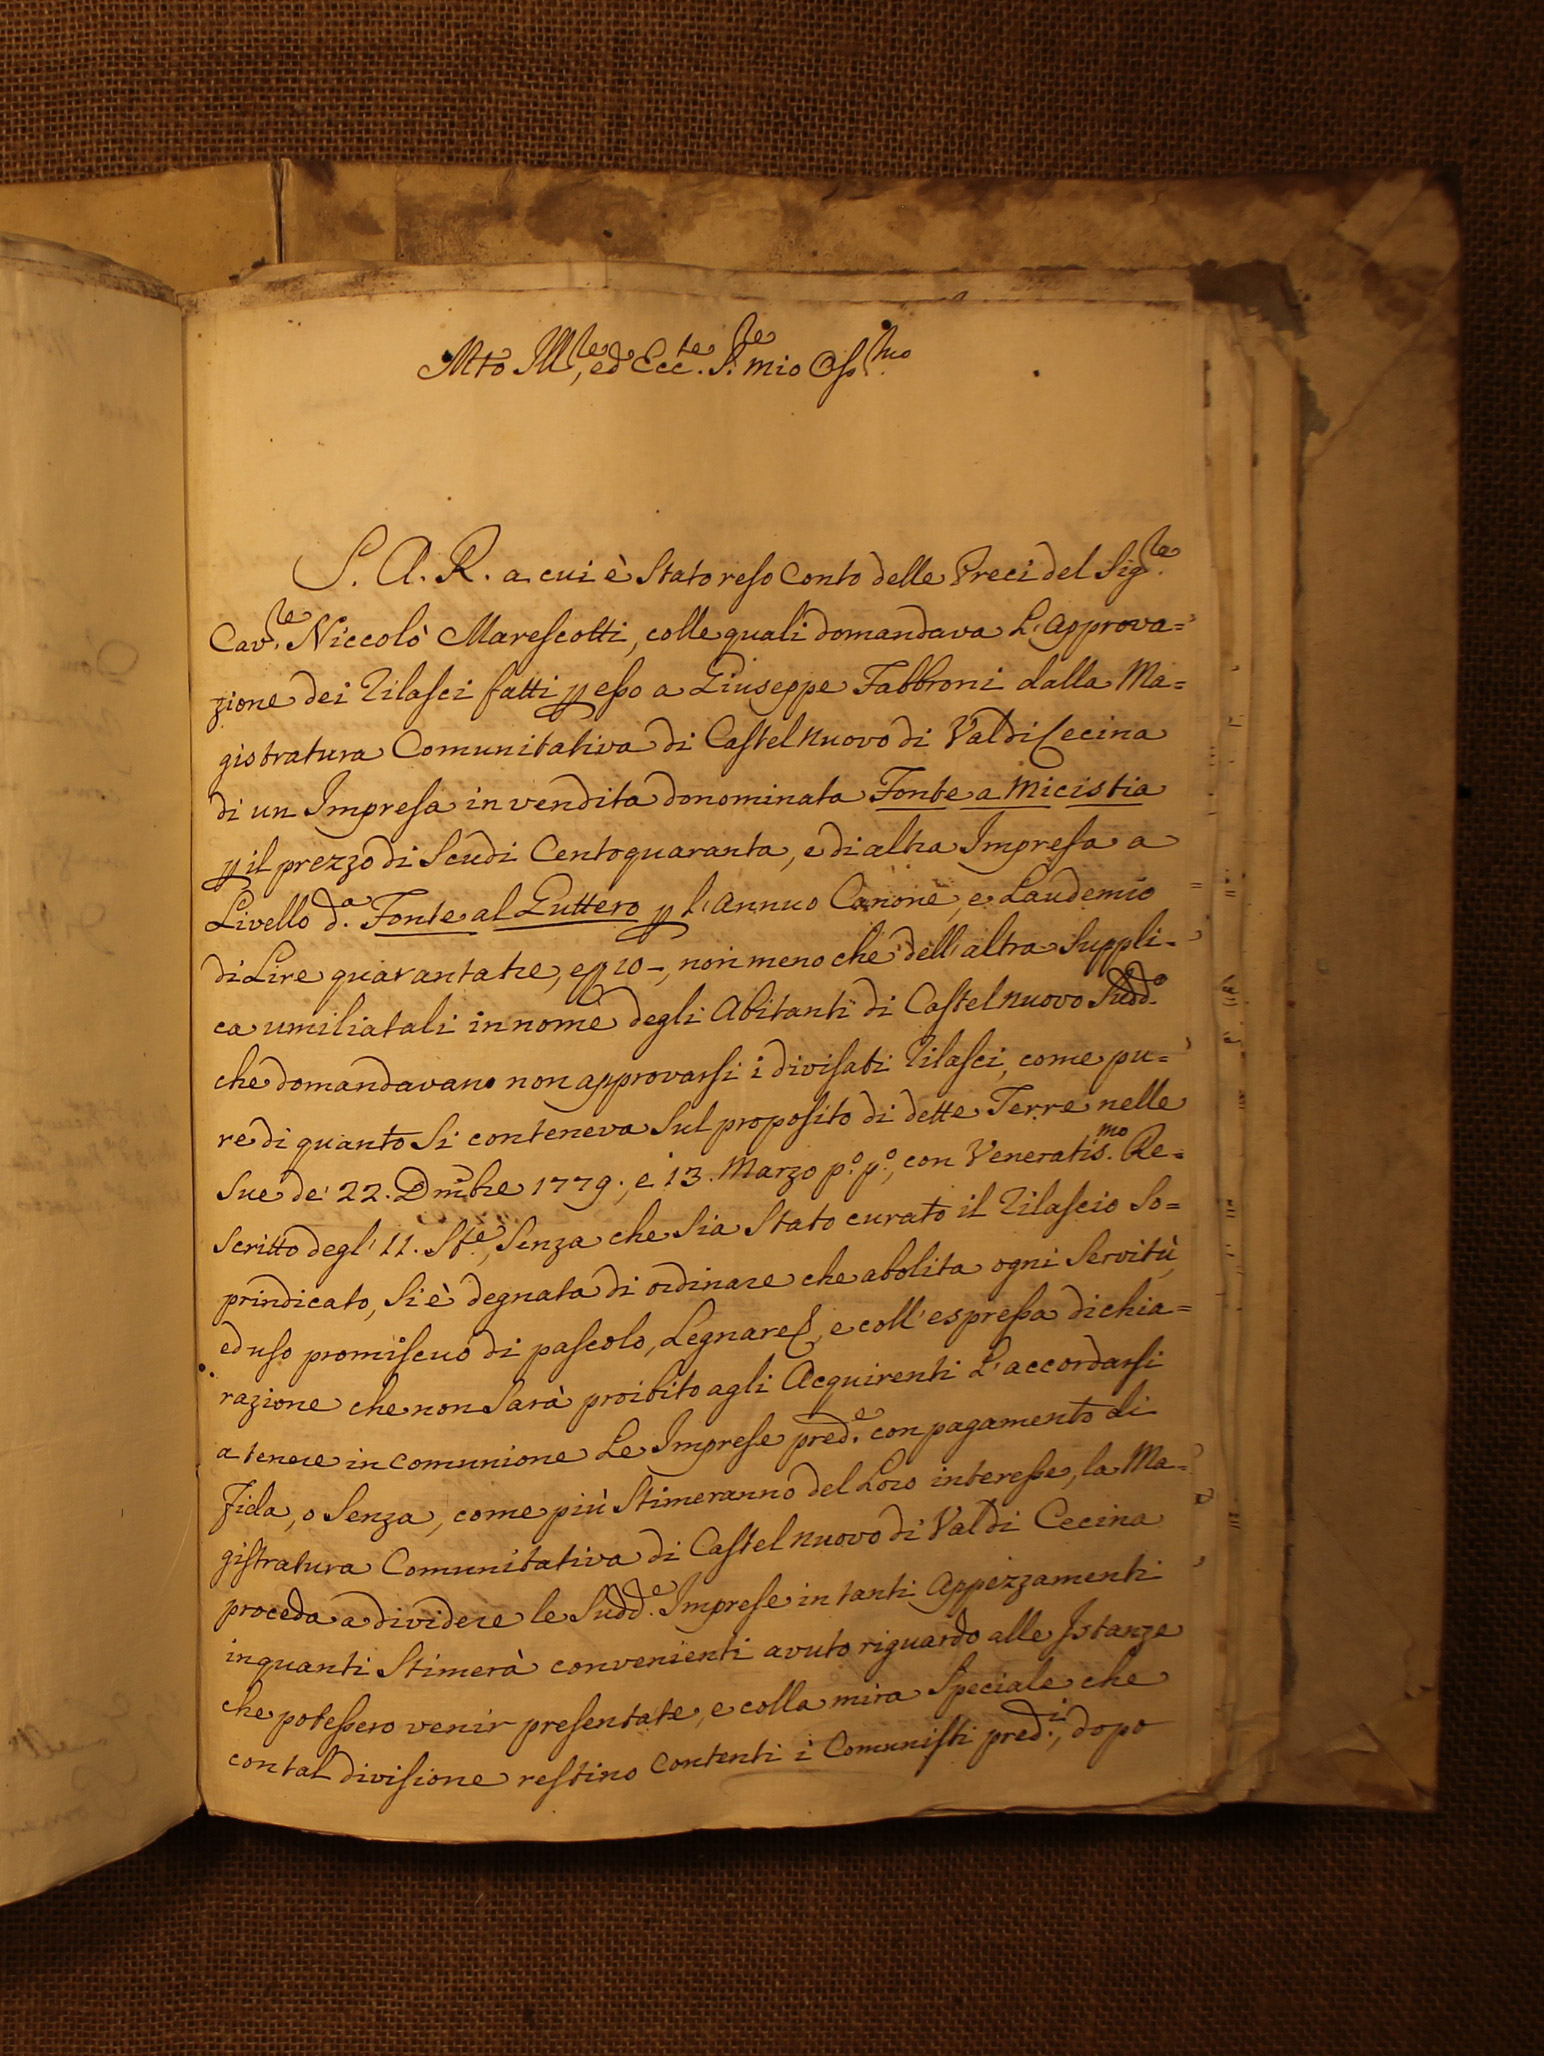 Mto Ill.re, ed Ecc.te S.re mio Oss.mo
S. A. R. a cui è Stato reso Conto delle Preci del Sig.re
Cav.re Niccolò Marescotti, colle quali domandava L'Approva=
zione dei Rilasci fatti p esso a Giuseppe Fabbroni dalla Ma=
gistratura Comunitativa di Castelnuovo di Val di Cecina
di un Impresa in vendita donominata Fonte a Micistia
p il prezzo di Scudi Centoquaranta, e di altra Impresa a
Livello d.a Fonte al Guttero p l'annuo Canone, e Laudemio
di Lire quarantatre, e 10 –, non meno che dell'altra Suppli=
ca umiliatali in nome degli Abitanti di Castelnuovo Sudd.o
che domandavano non approvarsi i divisati Rilasci, come pu=
re di quanto Si conteneva Sul proposito di dette Terre nelle
Sue de' 22. Dmbre 1779., e 13. Marzo p.o p.o, con Veneratis.mo Re=
scritto degl' 11. St.e, Senza che Sia Stato curato il Rilascio So=
prindicato, Si è degnata di ordinare che abolita ogni Servitù,
ed uso promiscuo di pascolo, Legnare, e coll'espressa dichia=
razione che non Sarà proibito agli Acquirenti L'accordarsi
a tenere in comunione Le Imprese pred.e con pagamento di
Fida, o Senza, come più Stimeranno del Loro interesse, la Ma=
gistratura Comunitativa di Castelnuovo di Val di Cecina
proceda a dividere le Sudd.e Imprese in tanti Appezzamenti
in quanti Stimerà convenienti avuto riguardo alle Istanze
che potessero venir presentate, e colla mira Speciale che
con tal divisione restino contenti i Comunisti pred.i, dopo